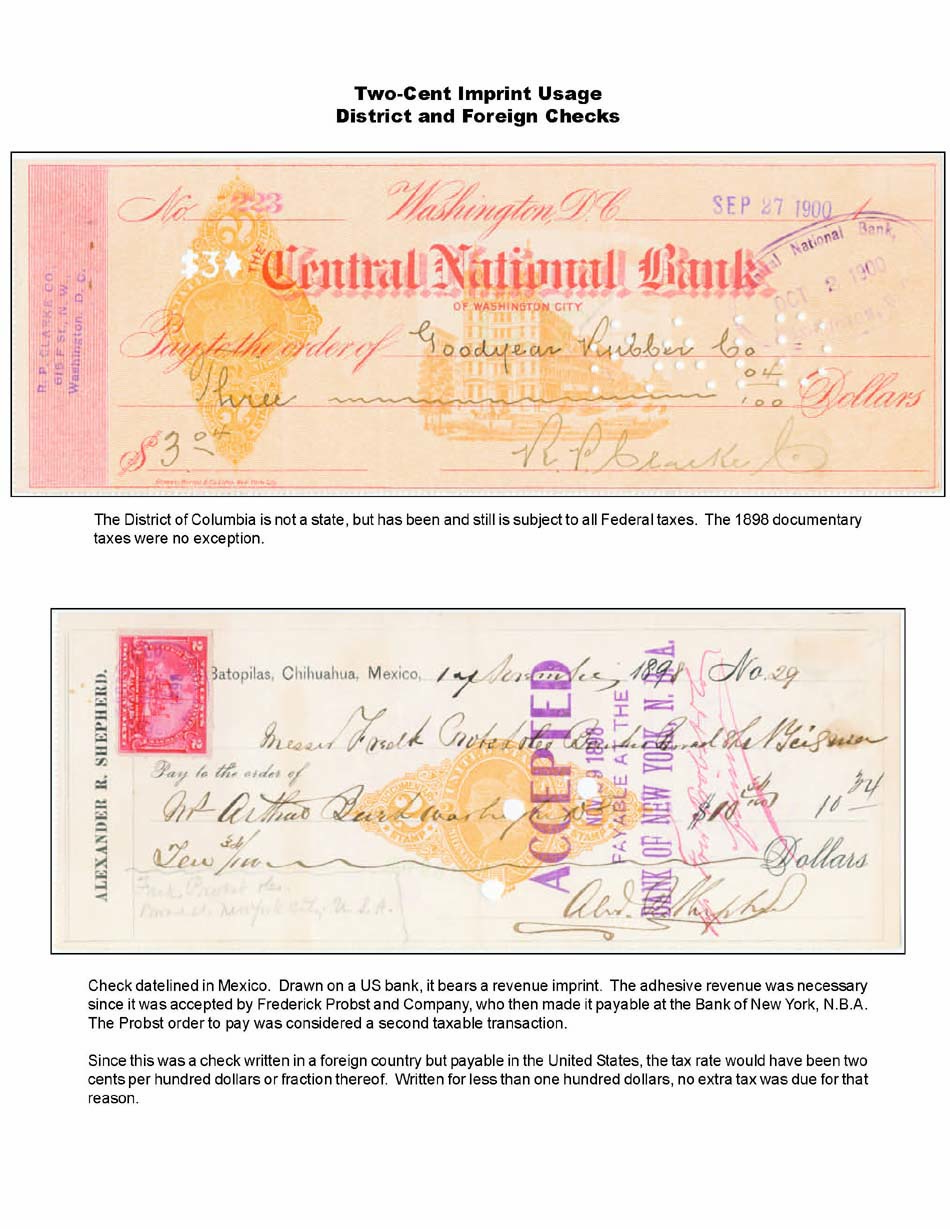 Two-Cent Imprint Usage
District and Foreign Checks
No. 223 Washington, D.C. SEP 27 1900
$3
THE Central National Bank
OF WASHINGTON CITY
National Bank,
OCT 2 1900
R. P. CLARKE CO.
615 F St., N. W.,
Washington, D. C.
Pay to the order of Goodyear Rubber Co
Three 04/100 Dollars
$3 04 R. P. Clarke Co
The District of Columbia is not a state, but has been and still is subject to all Federal taxes. The 1898 documentary
taxes were no exception.
ALEXANDER R. SHEPHERD.
Batopilas, Chihuahua, Mexico, 1898 No. 29
Messrs Fredk
Pay to the order of
Mr Arthur $10 34/100 10 34
2
STAMP STAMP
Ten 34/100 Dollars
New York City, U.S.A.
Alex. R. Shepherd
ACCEPTED
NOV 9 1898
PAYABLE AT THE
BANK OF NEW YORK N. B. A.
Check datelined in Mexico. Drawn on a US bank, it bears a revenue imprint. The adhesive revenue was necessary
since it was accepted by Frederick Probst and Company, who then made it payable at the Bank of New York, N.B.A.
The Probst order to pay was considered a second taxable transaction.
Since this was a check written in a foreign country but payable in the United States, the tax rate would have been two
cents per hundred dollars or fraction thereof. Written for less than one hundred dollars, no extra tax was due for that
reason.